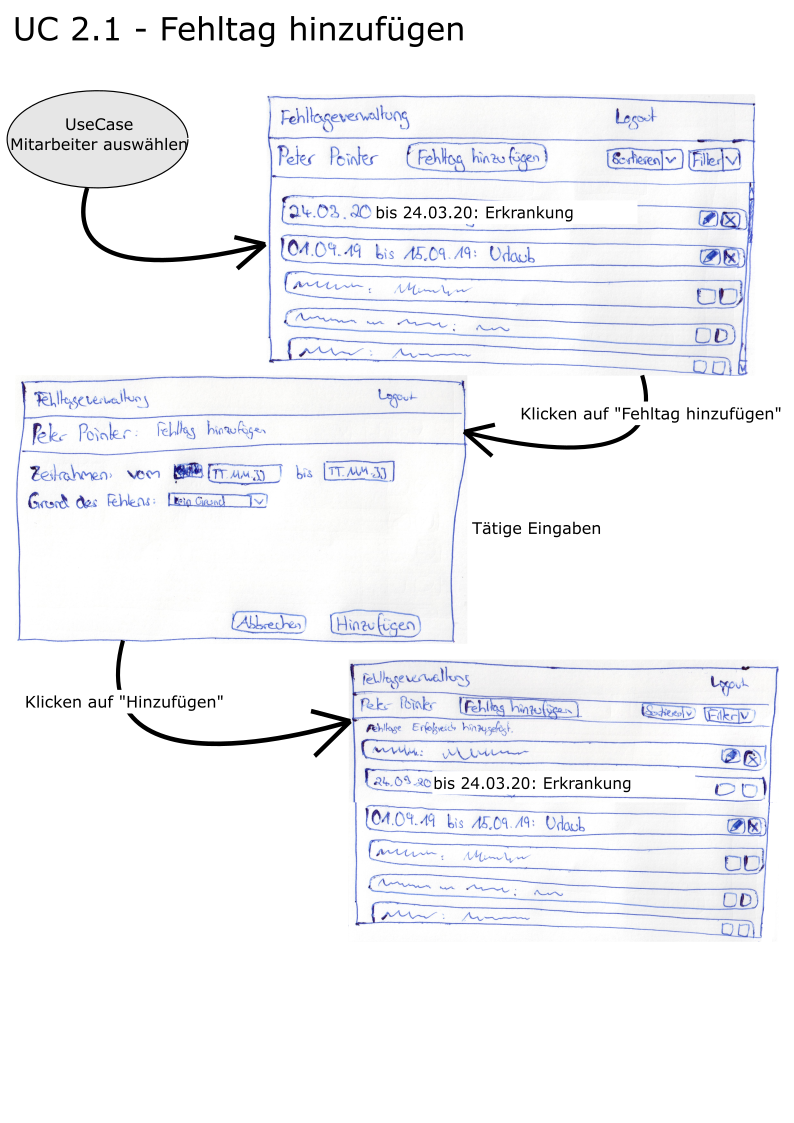 UC 2.1 - Fehltag hinzufügen
UseCase
Mitarbeiter auswählen
Fehltageverwaltung Logout
Peter Pointer Fehltag hinzufügen Sortieren Filter
24.03.20 bis 24.03.20: Erkrankung
01.09.19 bis 15.09.19: Urlaub
Klicken auf "Fehltag hinzufügen"
Fehltageverwaltung Logout
Peter Pointer: Fehltag hinzufügen
Zeitrahmen: vom TT.MM.JJ bis TT.MM.JJ
Grund des Fehlens: Kein Grund
Tätige Eingaben
Abbrechen Hinzufügen
Klicken auf "Hinzufügen"
Fehltageverwaltung Logout
Peter Pointer Fehltag hinzufügen Sortieren Filter
Fehltage Erfolgreich hinzugefügt.
24.03.20 bis 24.03.20: Erkrankung
01.09.19 bis 15.09.19: Urlaub